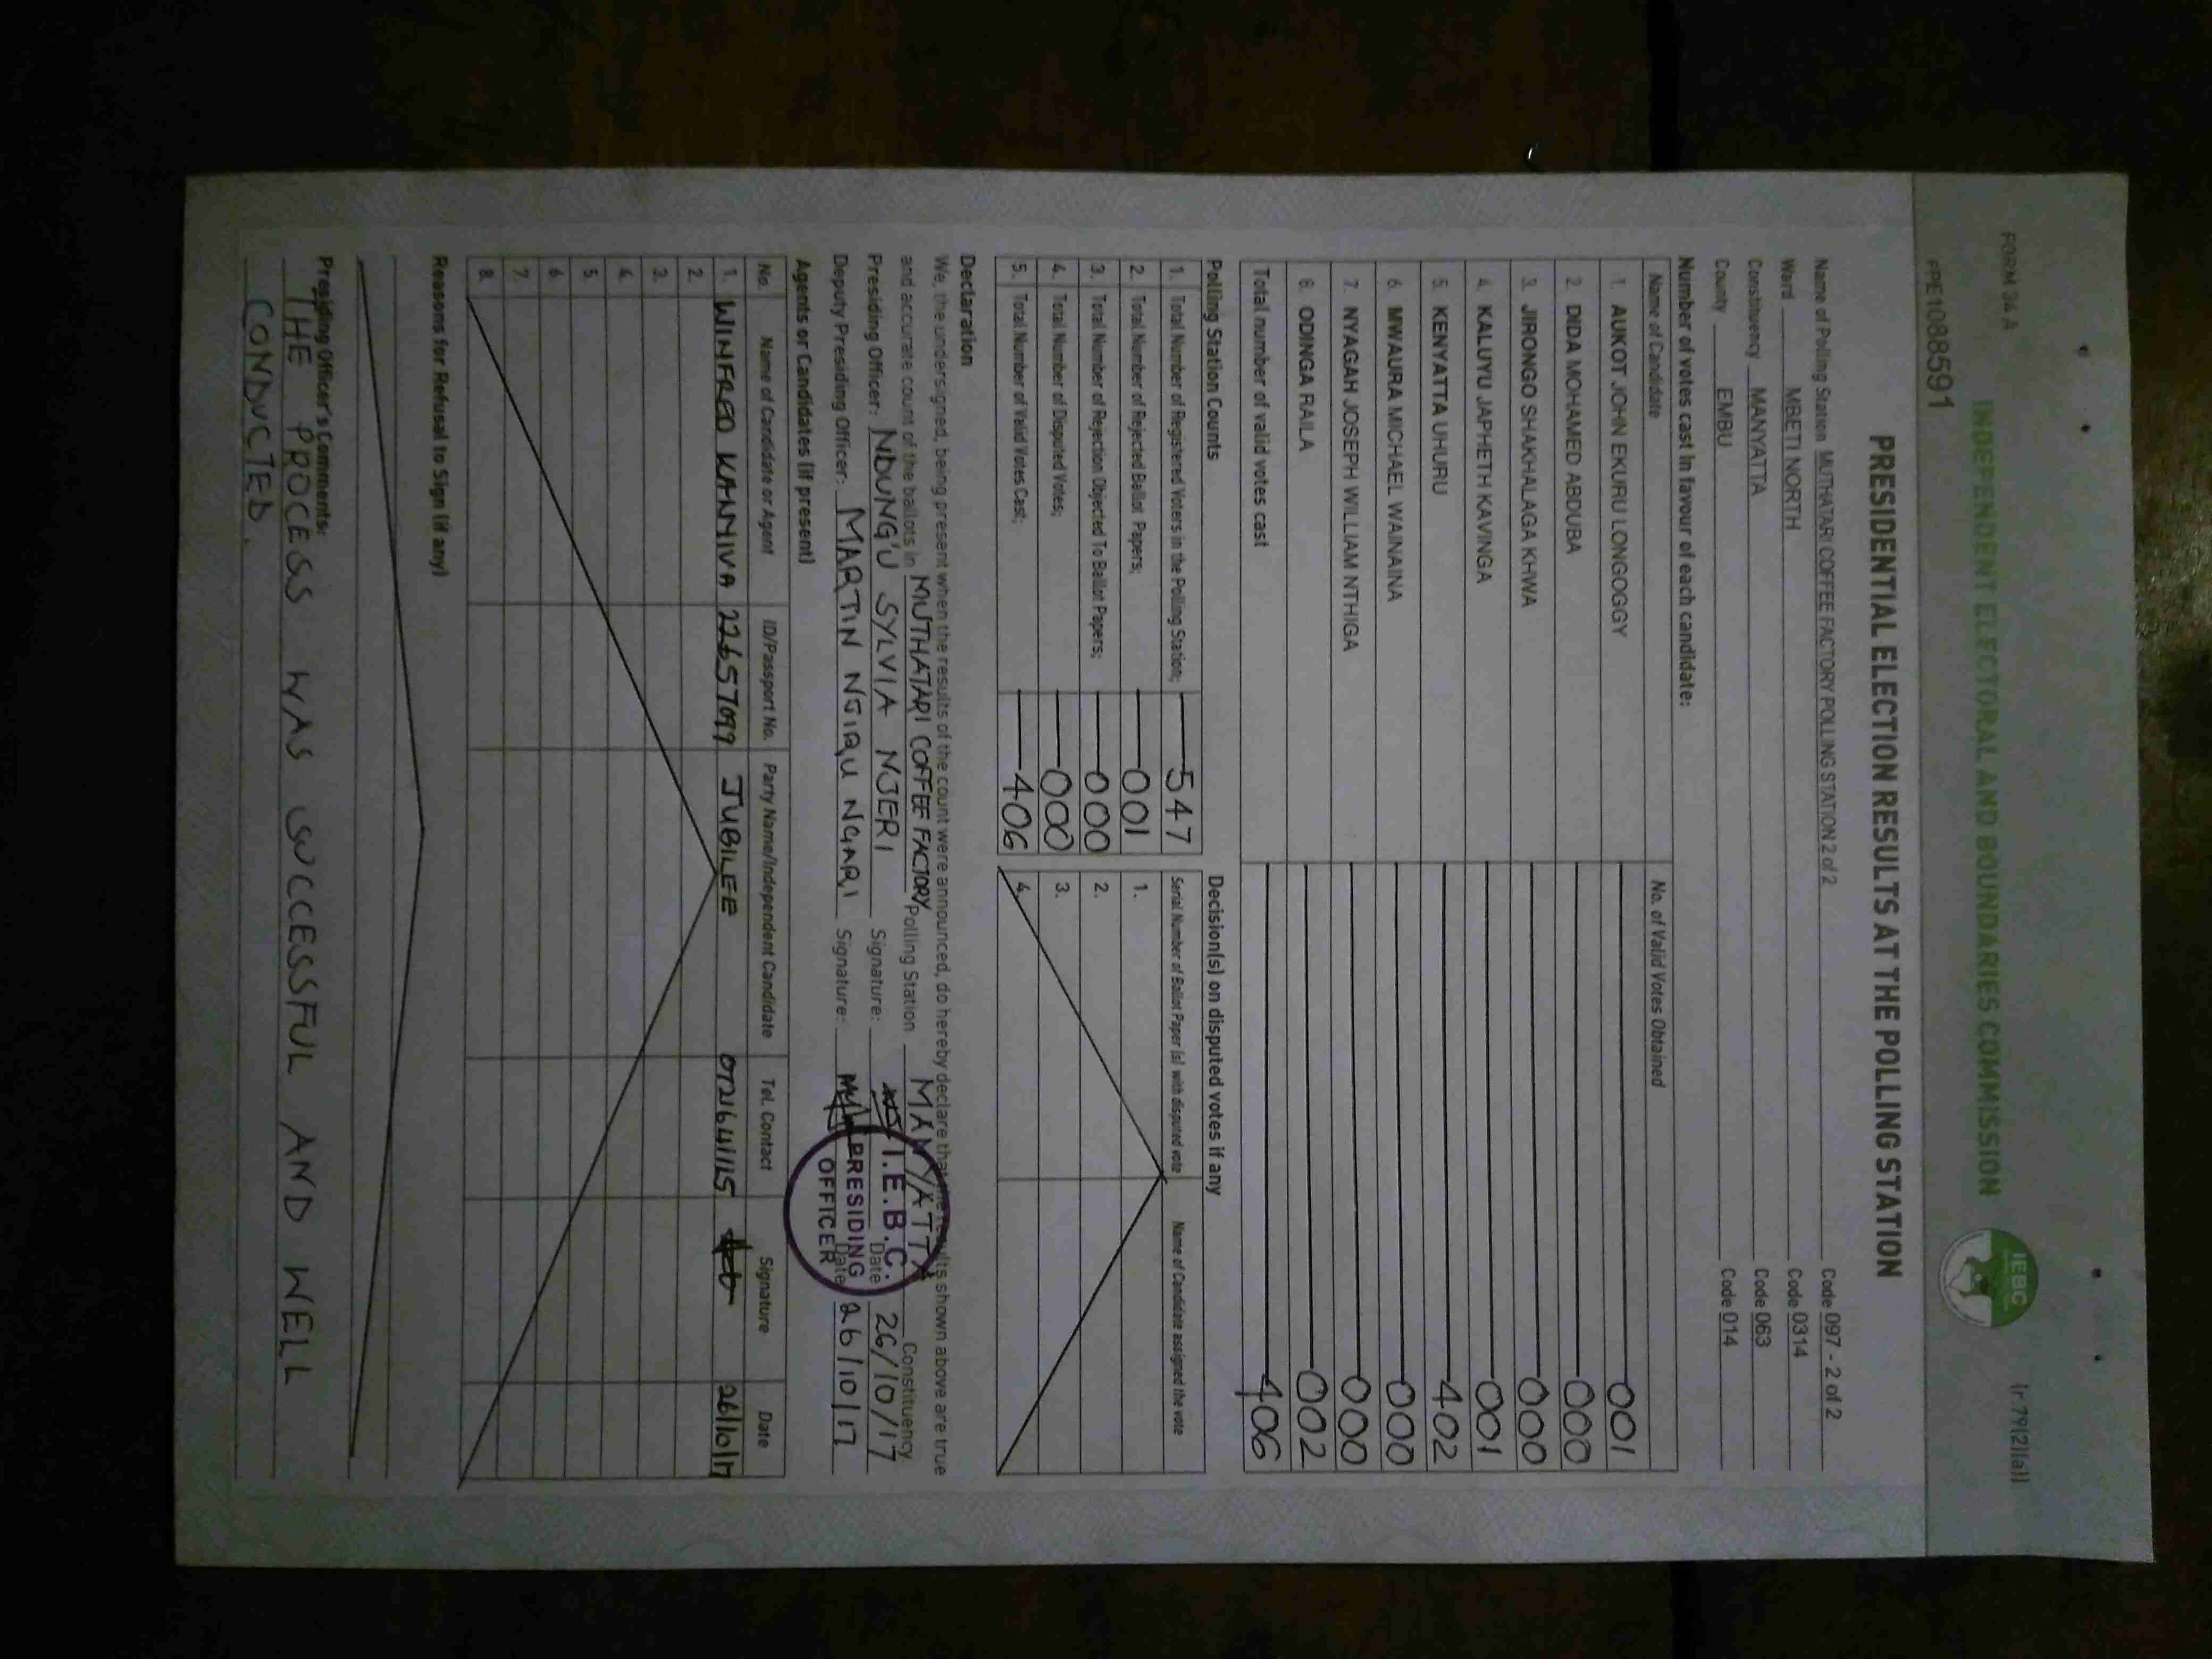 FORM 34 A
(r 79(2)(a))
INDEPENDENT ELECTORAL AND BOUNDARIES COMMISSION
IEBC
PRE1088591
PRESIDENTIAL ELECTION RESULTS AT THE POLLING STATION
Name of Polling Station MUTHATARI COFFEE FACTORY POLLING STATION 2 of 2 Code 097 - 2 of 2
Ward MBETI NORTH Code 0314
Constituency MANYATTA Code 063
County EMBU Code 014
Number of votes cast in favour of each candidate:
Name of Candidate No. of Valid Votes Obtained
1. AUKOT JOHN EKURU LONGOGGY 001
2. DIDA MOHAMED ABDUBA 000
3. JIRONGO SHAKHALAGA KHWA 000
4. KALUYU JAPHETH KAVINGA 001
5. KENYATTA UHURU 402
6. MWAURA MICHAEL WAINAINA 000
7. NYAGAH JOSEPH WILLIAM NTHIGA 000
8. ODINGA RAILA 002
Total number of valid votes cast 406
Polling Station Counts Decision(s) on disputed votes if any
Serial Number of Ballot Paper (s) with disputed vote Name of Candidate assigned the vote
1. Total Number of Registered Voters in the Polling Station; 547
2. Total Number of Rejected Ballot Papers; 001 1.
3. Total Number of Rejection Objected To Ballot Papers; 000 2.
4. Total Number of Disputed Votes; 000 3.
5. Total Number of Valid Votes Cast; 406 4.
Declaration
We, the undersigned, being present when the results of the count were announced, do hereby declare that the results shown above are true
and accurate count of the ballots in MUTHATARI COFFEE FACTORY Polling Station MANYATTA Constituency
Presiding Officer: NDUNG'U SYLVIA NJERI Signature: Date 26/10/17
Deputy Presiding Officer: MARTIN NGIRU NGARI Signature: Date 26/10/17
I.E.B.C.
PRESIDING
OFFICER
Agents or Candidates (if present)
No. Name of Candidate or Agent ID/Passport No. Party Name/Independent Candidate Tel. Contact Signature Date
1. WINFRED KANYIVA 22657099 JUBILEE 0721641115 26/10/17
2.
3.
4.
5.
6.
7.
8.
Reasons for Refusal to Sign (if any)
Presiding Officer's Comments:
THE PROCESS WAS SUCCESSFUL AND WELL
CONDUCTED.